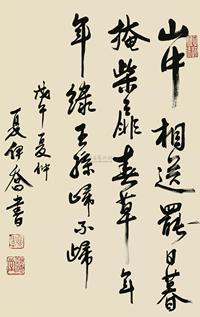 山中相送罷日暮
掩柴扉春草年
年綠王孫歸不歸
戊午夏仲
夏伊喬書